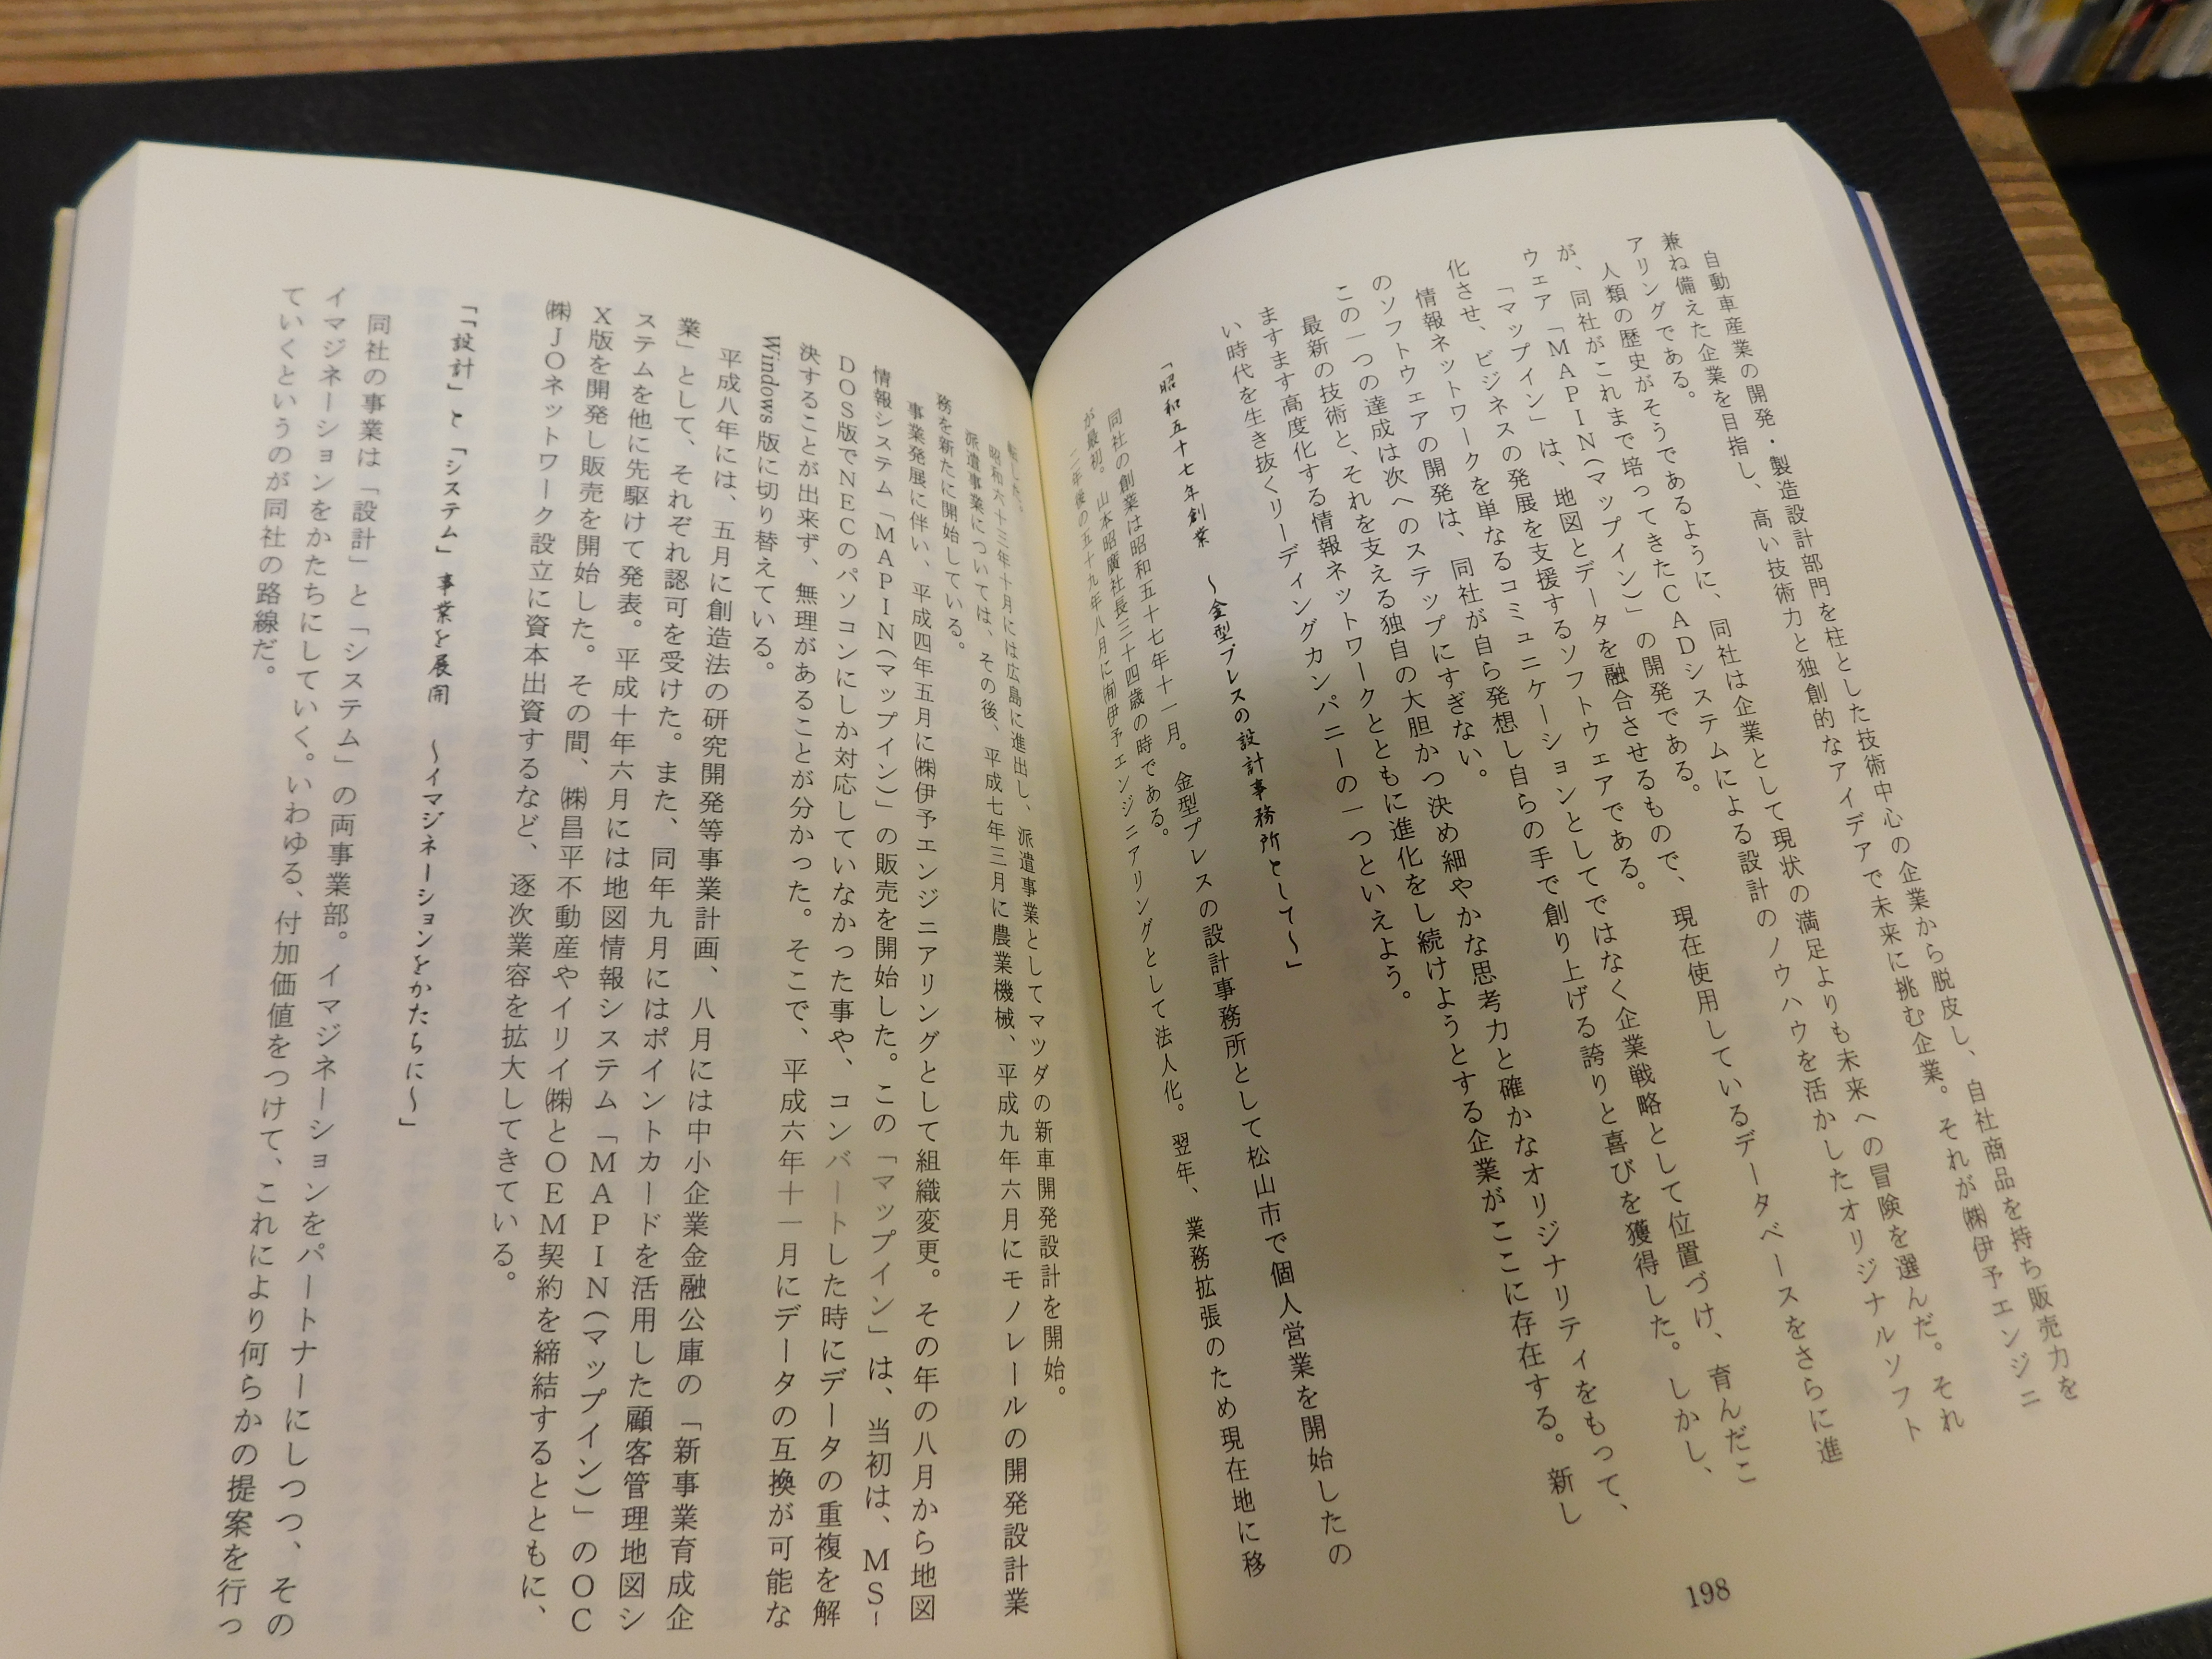 自動車産業の開発・製造設計部門を柱とした技術中心の企業から脱皮し、自社商品を持ち販売力を
兼ね備えた企業を目指し、高い技術力と独創的なアイデアで未来に挑む企業。それが㈱伊予エンジニ
アリングである。
人類の歴史がそうであるように、同社は企業として現状の満足よりも未来への冒険を選んだ。それ
が、同社がこれまで培ってきたCADシステムによる設計のノウハウを活かしたオリジナルソフト
ウェア「MAPIN(マップイン)」の開発である。
「マップイン」は、地図とデータを融合させるもので、現在使用しているデータベースをさらに進
化させ、ビジネスの発展を支援するソフトウェアである。
情報ネットワークを単なるコミュニケーションとしてではなく企業戦略として位置づけ、育んだこ
のソフトウェアの開発は、同社が自ら発想し自らの手で創り上げる誇りと喜びを獲得した。しかし、
この一つの達成は次へのステップにすぎない。
最新の技術と、それを支える独自の大胆かつ決め細やかな思考力と確かなオリジナリティをもって、
ますます高度化する情報ネットワークとともに進化をし続けようとする企業がここに存在する。新し
い時代を生き抜くリーディングカンパニーの一つといえよう。
「昭和五十七年創業　〜金型プレスの設計事務所として〜」
同社の創業は昭和五十七年十一月。金型プレスの設計事務所として松山市で個人営業を開始したの
が最初。山本昭廣社長三十四歳の時である。
二年後の五十九年八月に㈲伊予エンジニアリングとして法人化。翌年、業務拡張のため現在地に移
転した。
昭和六十三年十月には広島に進出し、派遣事業としてマツダの新車開発設計を開始。
派遣事業については、その後、平成七年三月に農業機械、平成九年六月にモノレールの開発設計業
務を新たに開始している。
事業発展に伴い、平成四年五月に㈱伊予エンジニアリングとして組織変更。その年の八月から地図
情報システム「MAPIN(マップイン)」の販売を開始した。この「マップイン」は、当初は、MS-
DOS版でNECのパソコンにしか対応していなかった事や、コンバートした時にデータの重複を解
決することが出来ず、無理があることが分かった。そこで、平成六年十一月にデータの互換が可能な
Windows版に切り替えている。
平成八年には、五月に創造法の研究開発等事業計画、八月には中小企業金融公庫の「新事業育成企
業」として、それぞれ認可を受けた。また、同年九月にはポイントカードを活用した顧客管理地図シ
ステムを他に先駆けて発表。平成十年六月には地図情報システム「MAPIN(マップイン)」のOC
X版を開発し販売を開始した。その間、㈱昌平不動産やイリイ㈱とOEM契約を締結するとともに、
㈱JOネットワーク設立に資本出資するなど、逐次業容を拡大してきている。
「「設計」と「システム」事業を展開　〜イマジネーションをかたちに〜」
同社の事業は「設計」と「システム」の両事業部。イマジネーションをパートナーにしつつ、その
イマジネーションをかたちにしていく。いわゆる、付加価値をつけて、これにより何らかの提案を行っ
ていくというのが同社の路線だ。
198